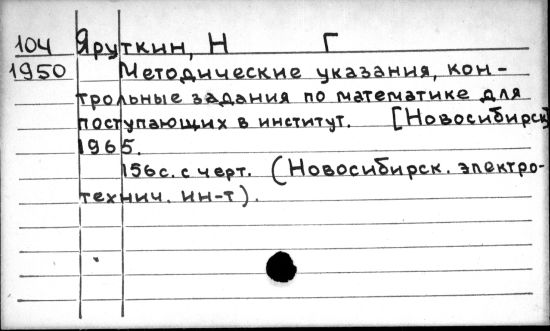 104 Яруткин, Н Г
1950 Методические указания, кон-
трольные задания по математике для
поступающих в институт. [Новосибирск]
1965.
156с. с черт. (Новосибирск. электро-
технич. ин-т).